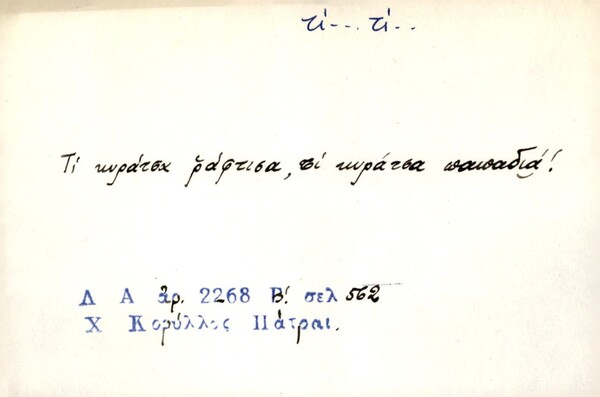 τί--. τί-.
Τί κυράτσα ράφτισα, τί κυράτσα παπαδιά!
Λ Α ἀρ. 2268 Β΄. σελ 562
Χ Κορύλλος Πάτραι.